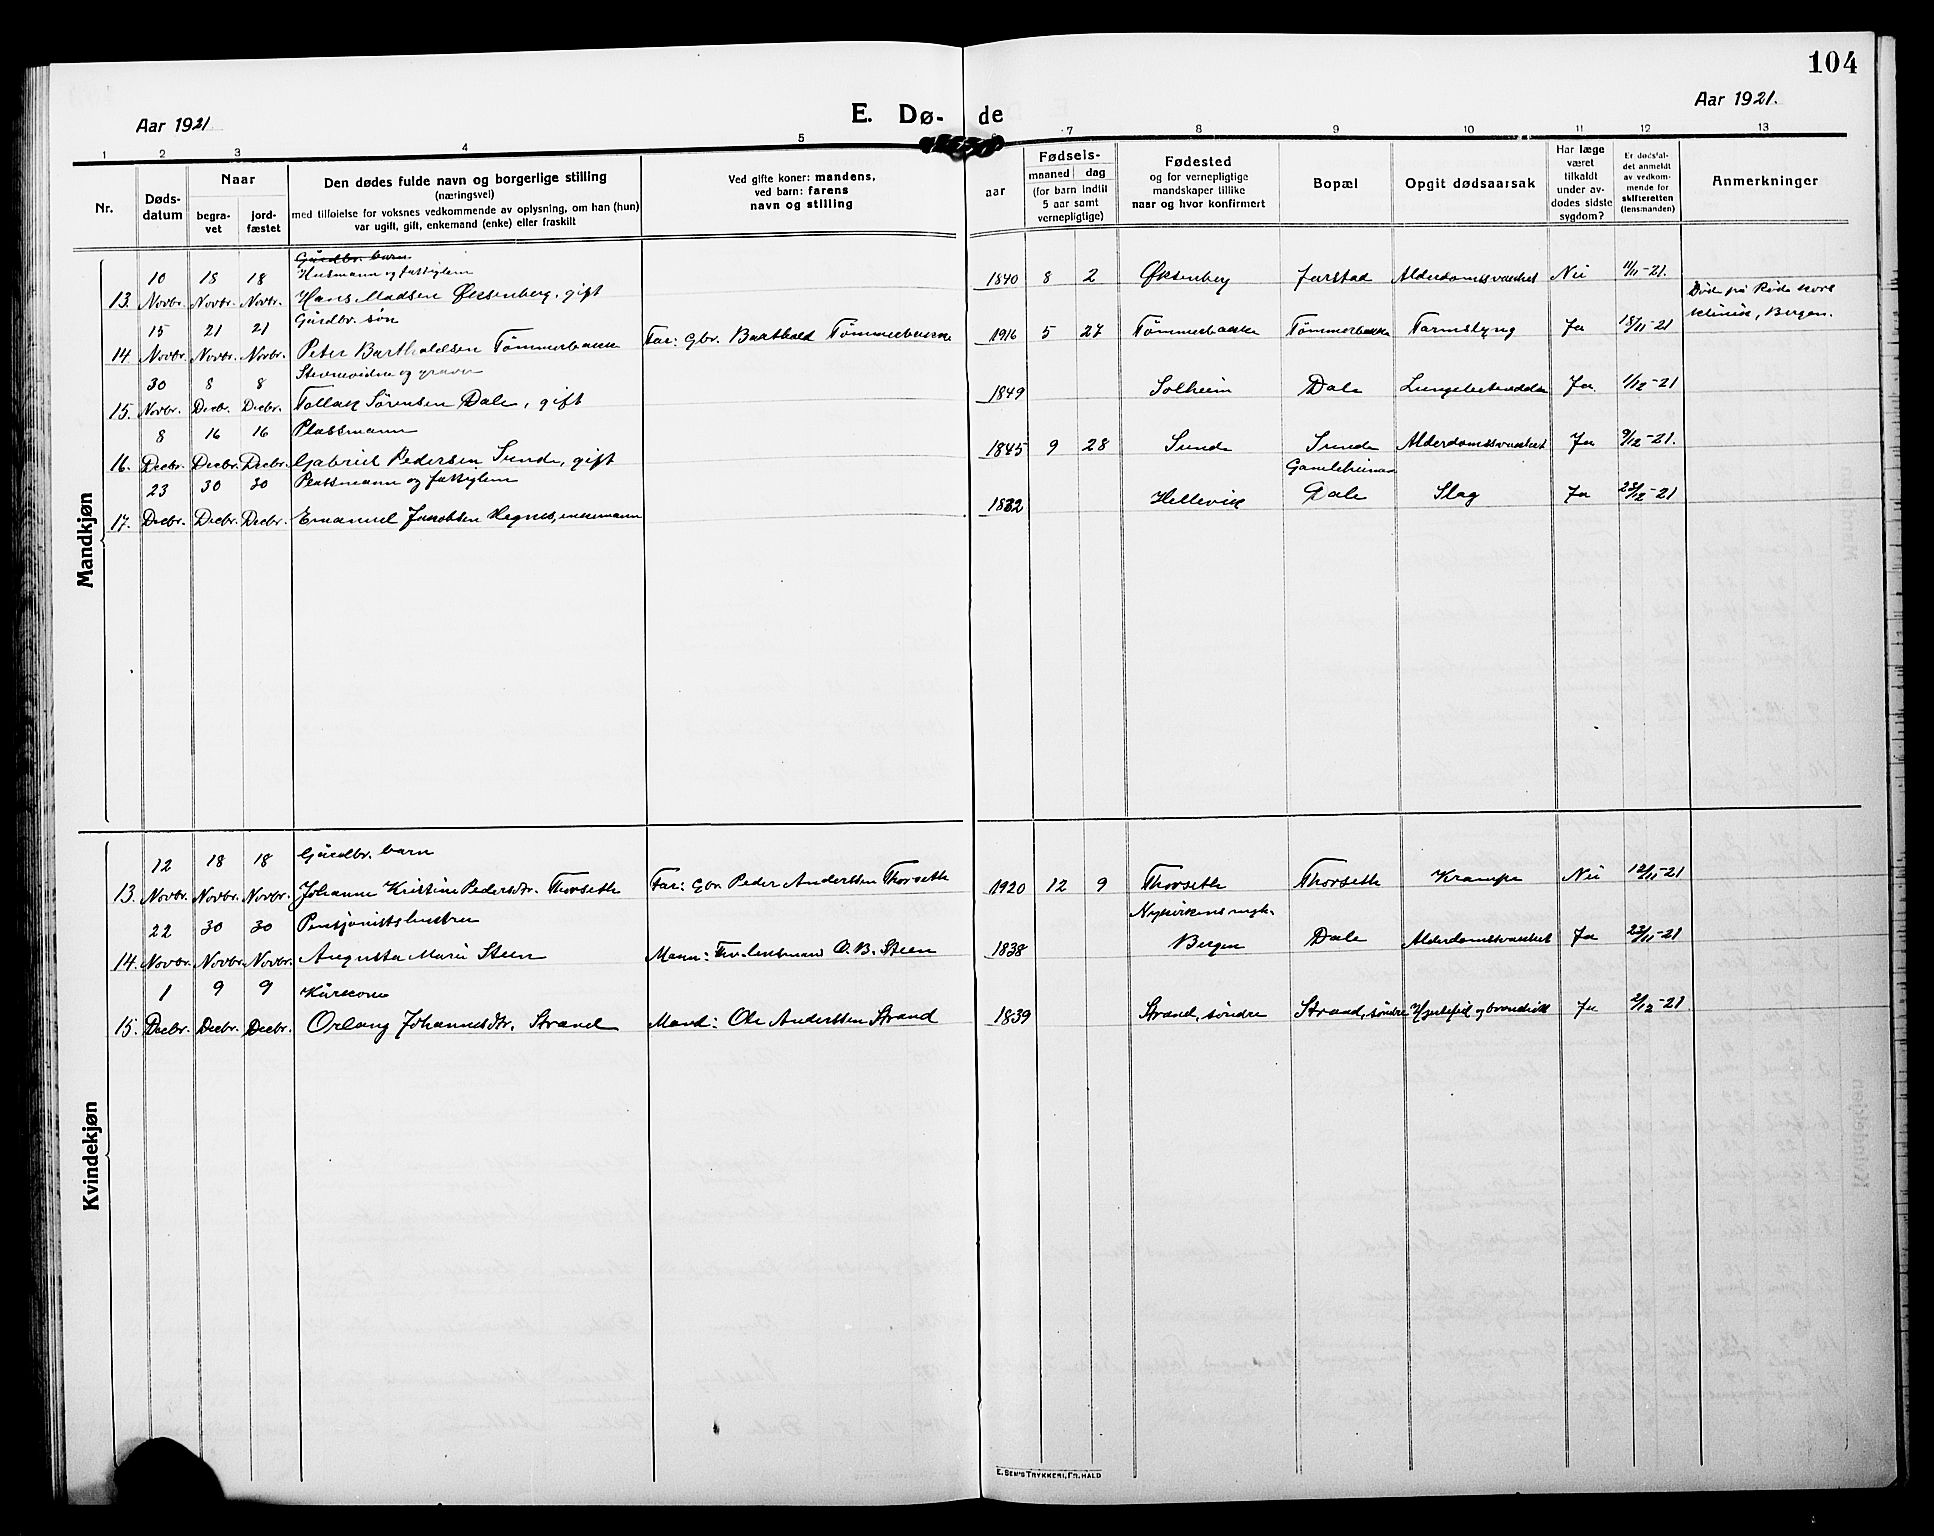 104
Aar 1921
E. Dø-
de
Aar 1921.
1 2 3 4 5 7 8 9 10 11 12 13
Nr.
Døds-
datum
Naar
begra-
vet
jord-
fæstet
Den dødes fulde navn og borgerlige stilling
(næringsvei)
med tilføielse for voksnes vedkommende av oplysning, om han (hun)
var ugift, gift, enkemand (enke) eller fraskilt
Ved gifte koner: mandens,
ved barn: farens
navn og stilling
Fødsels-
aar
maaned dag
(for barn indtil
5 aar samt
vernepligtige)
Fødested
og for vernepligtige
mandskaper tillike
naar og hvor konfirmert
Bopæl
Opgit dødsaarsak
Har læge
været
tilkaldt
under av-
dødes sidste
sygdom?
Er dødsfal-
det anmeldt
av vedkom-
mende for
skifteretten
(lensmanden)
Anmerkninger
Mandkjøn
Gårdbr. barn
10 18 18 Husmann og fattiglem
13. Novbr. Novbr. Novbr. Hans Madsen Øksenberg, gift 1840 8 2 Øksenberg Jarstad Alderdomssvakhet Nei 11/11-21.
15 21 21 Gårdbr. søn
14. Novbr. Novbr. Novbr. Peter Bartholdsen Tømmerbakke Far: Gbr. Barthold Tømmerbakke 1916 5 27 Tømmerbakke Tømmerbakke Tarmslyng Ja 15/11-21 Døde på Røde kors
klinik, Bergen.
30 8 8 Stevnevidne og graver
15. Novbr. Decbr. Decbr. Tollak Sørensen Dale, gift 1849 Solheim Dale Lungebetendelse Ja 1/12-21
8 16 16 Plassmann
16. Decbr. Decbr. Decbr. Gabriel Pedersen Sunde, gift 1845 9 28 Sunde Sunde Alderdomssvakhet Ja 9/12-21.
23 30 30 Plassmann og fattiglem
17. Decbr. Decbr. Decbr. Emanuel Jakobsen Hegnes, enkemann 1832 Hellevik Gamleheimen
Dale Slag Ja 23/12-21
Kvindekjøn
12 18 18 Gårdbr. barn
13. Novbr. Novbr. Novbr. Johanne Kristine Pedersdtr. Thorseth Far: Gbr. Peder Anderssen Thorseth 1920 12 9 Thorseth Thorseth Krampe Nei 12/11-21
22 30 30 Pensjonistshustru
14. Novbr. Novbr. Novbr. Augusta Marie Steen Mann: Fhv. lensmand O. B. Steen 1838 Nykirkens
Bergen Dale Alderdomssvakhet Ja 22/11-21
1 9 9 Kårkone
15. Decbr. Decbr. Decbr. Orlaug Johannesdtr. Strand Mand: Ole Anderssen Strand 1839 Strand, søndre Strand, søndre Hjertefeil og Ja 2/12-21
E. SEM'S TRYKKERI, FR. HALD